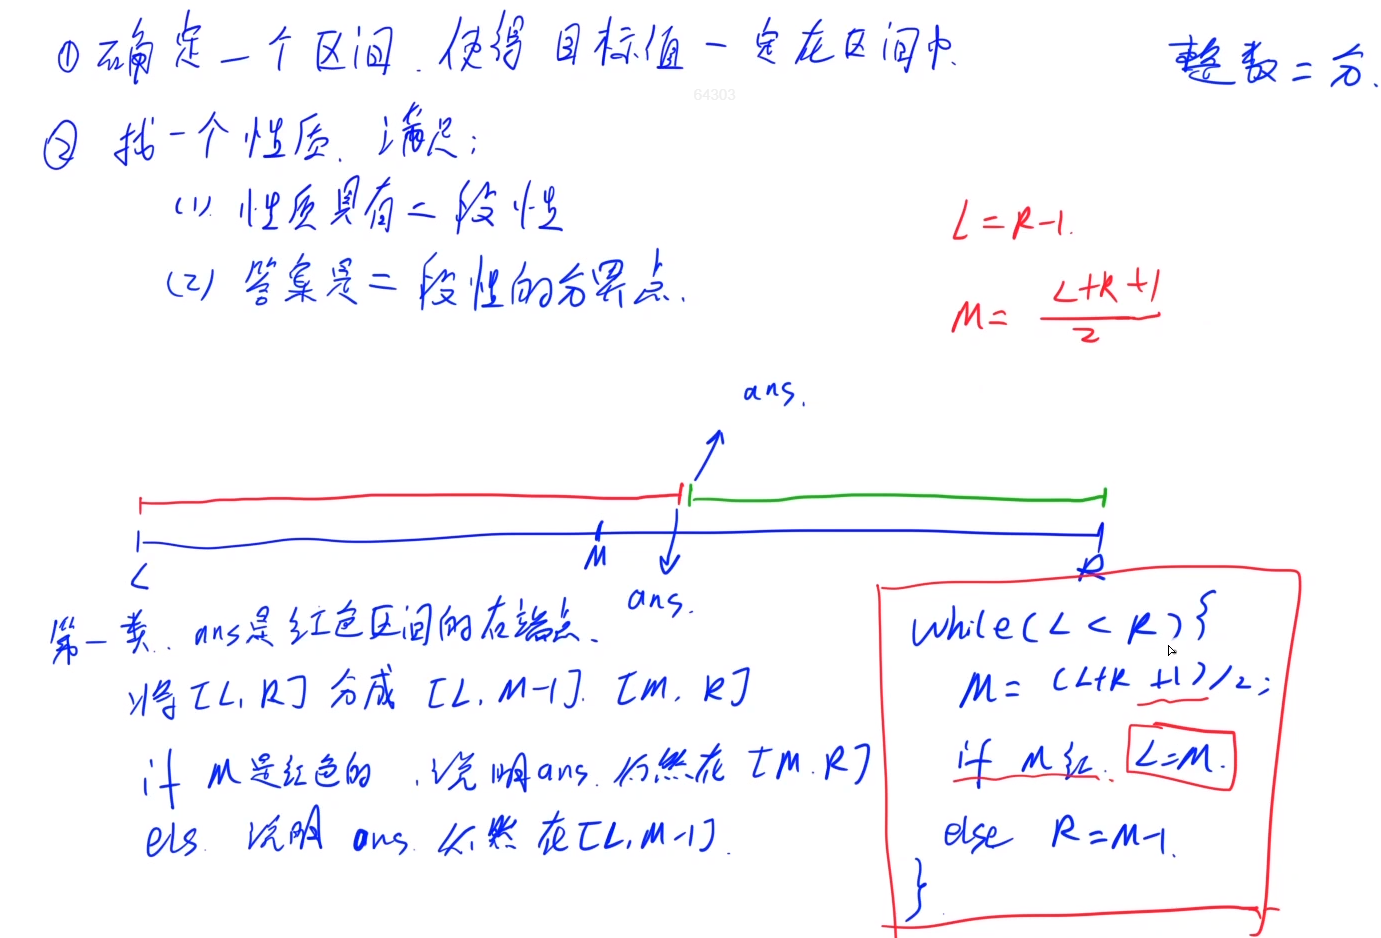 ① 确定一个区间,使得目标值一定在区间中.
整数二分.
64303
② 找一个性质,满足:
(1). 性质具有二段性
(2) 答案是二段性的分界点.
L=R-1.
M= (L+R+1)/2
ans.
L M R
ans.
第一类. ans是红色区间的右端点、
将[L,R]分成 [L,M-1]. [M,R]
if M是红色的,说明ans.仍然在[M.R]
els. 说明 ans. 仍然在[L,M-1].
while(L<R){
M=(L+R+1)/2;
if M红. L=M.
else R=M-1.
}